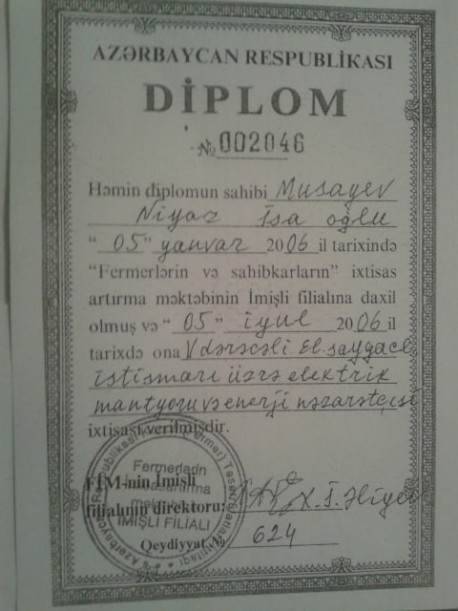 AZƏRBAYCAN RESPUBLİKASI
DİPLOM
№ 002046
Həmin diplomun sahibi Musayev
Niyaz İsa oğlu
“ 05 ” yanvar 2006 il tarixində
“Fermerlərin və sahibkarların” ixtisas
artırma məktəbinin İmişli filialına daxil
olmuş və “ 05 ” iyul 2006 il
tarixdə ona V dərəcəli El. saygacı
istismarı üzrə elektrik
mantyoru və enerji nəzarətçisi
ixtisası verilmişdir.
Fermerlərin
məktəbi
İMİŞLİ FİLİALI
FİM-nin İmişli
filialının direktoru: X. İ. Əliyev
Qeydiyyat № 624